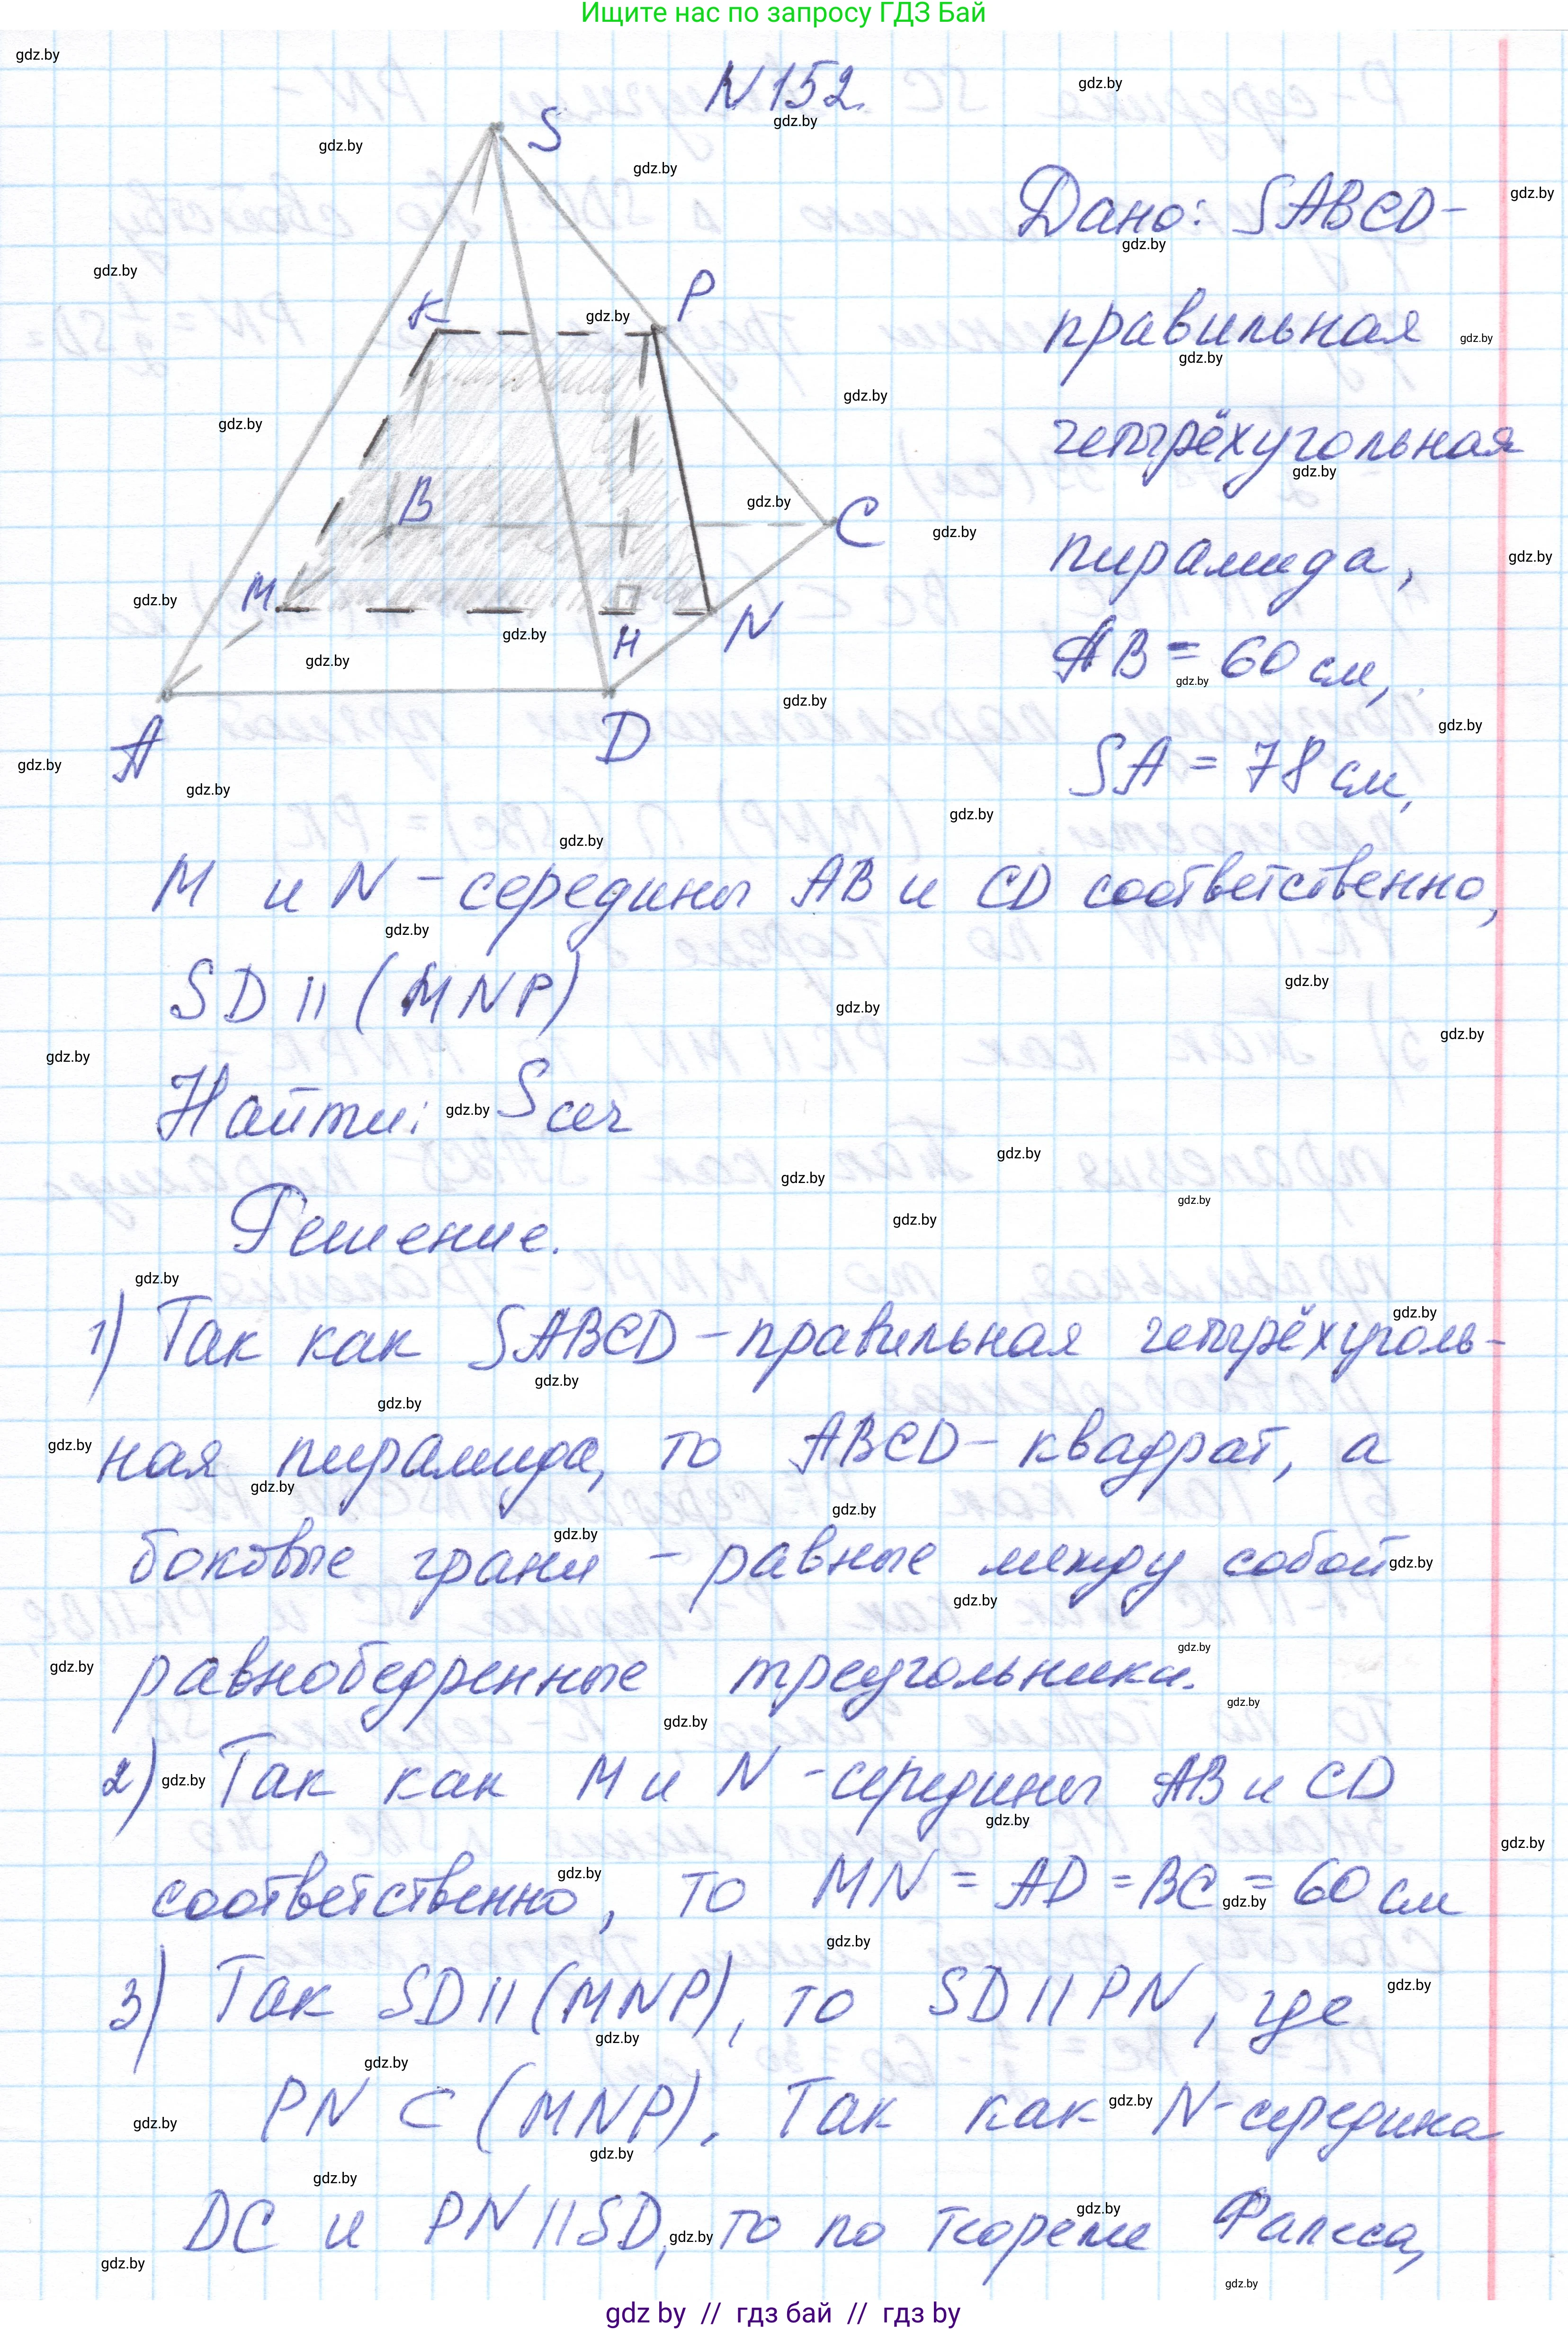 Ищите нас по запросу ГДЗ Бай
N 152.
S
K
P
B
C
M
H
N
A
D
Дано: SABCD-
правильная
четырёхугольная
пирамида,
AB = 60 см,
SA = 78 см,
M и N - середины AB и CD соответственно,
SD || (MNP)
Найти: Sсеч
Решение.
1) Так как SABCD - правильная четырёхуголь-
ная пирамида, то ABCD - квадрат, а
боковые грани - равные между собой
равнобедренные треугольники.
2) Так как M и N - середины AB и CD
соответственно, то MN = AD = BC = 60 см
3) Так SD || (MNP), то SD || PN, где
PN ⊂ (MNP). Так как N - середина
DC и PN || SD, то по теореме Фалеса,
gdz by // гдз бай // гдз by